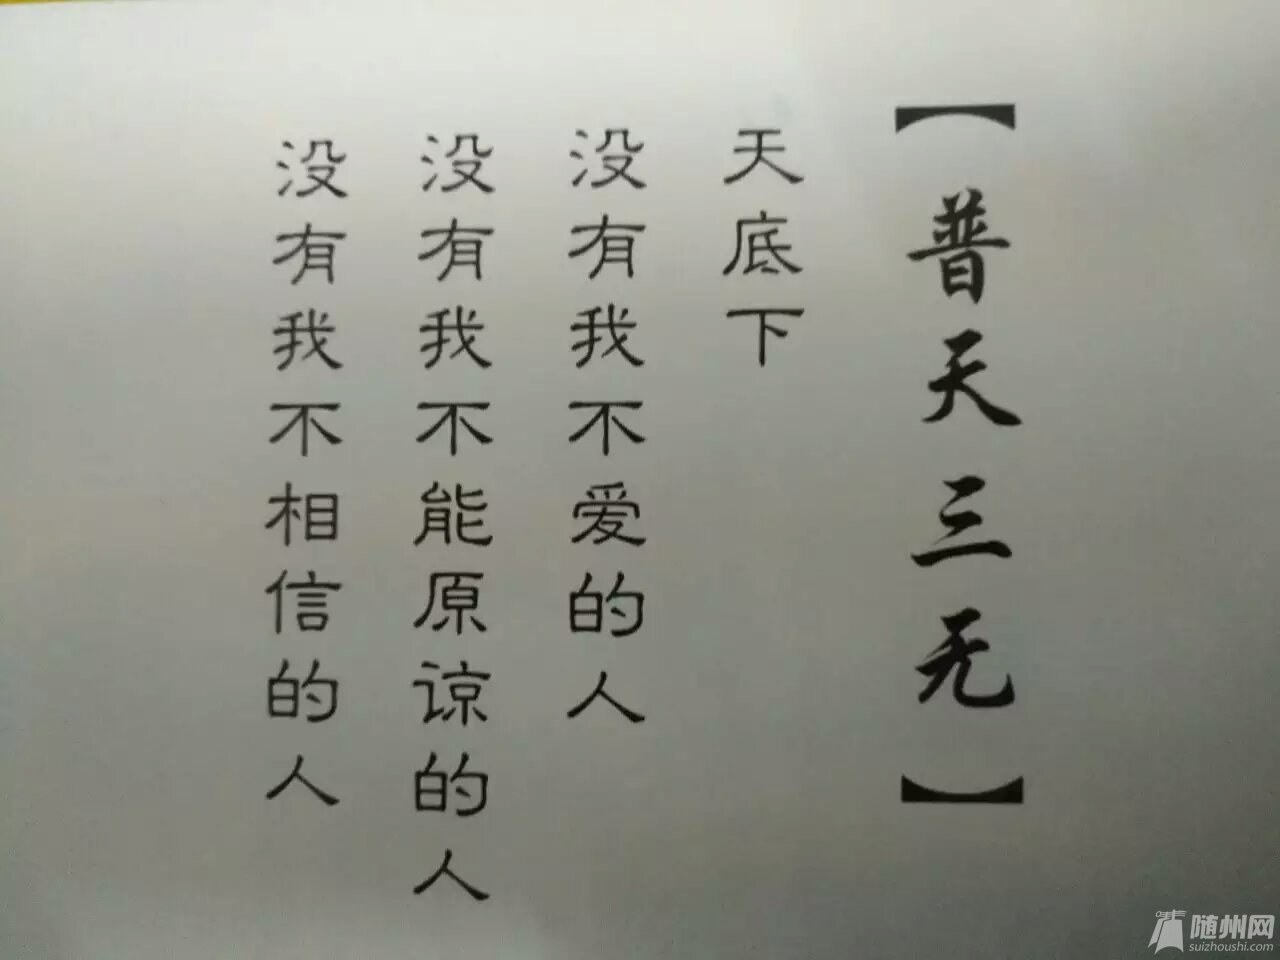 【普天三无】
天底下
没有我不爱的人
没有我不能原谅的人
没有我不相信的人
随州网
suizhoushi.com